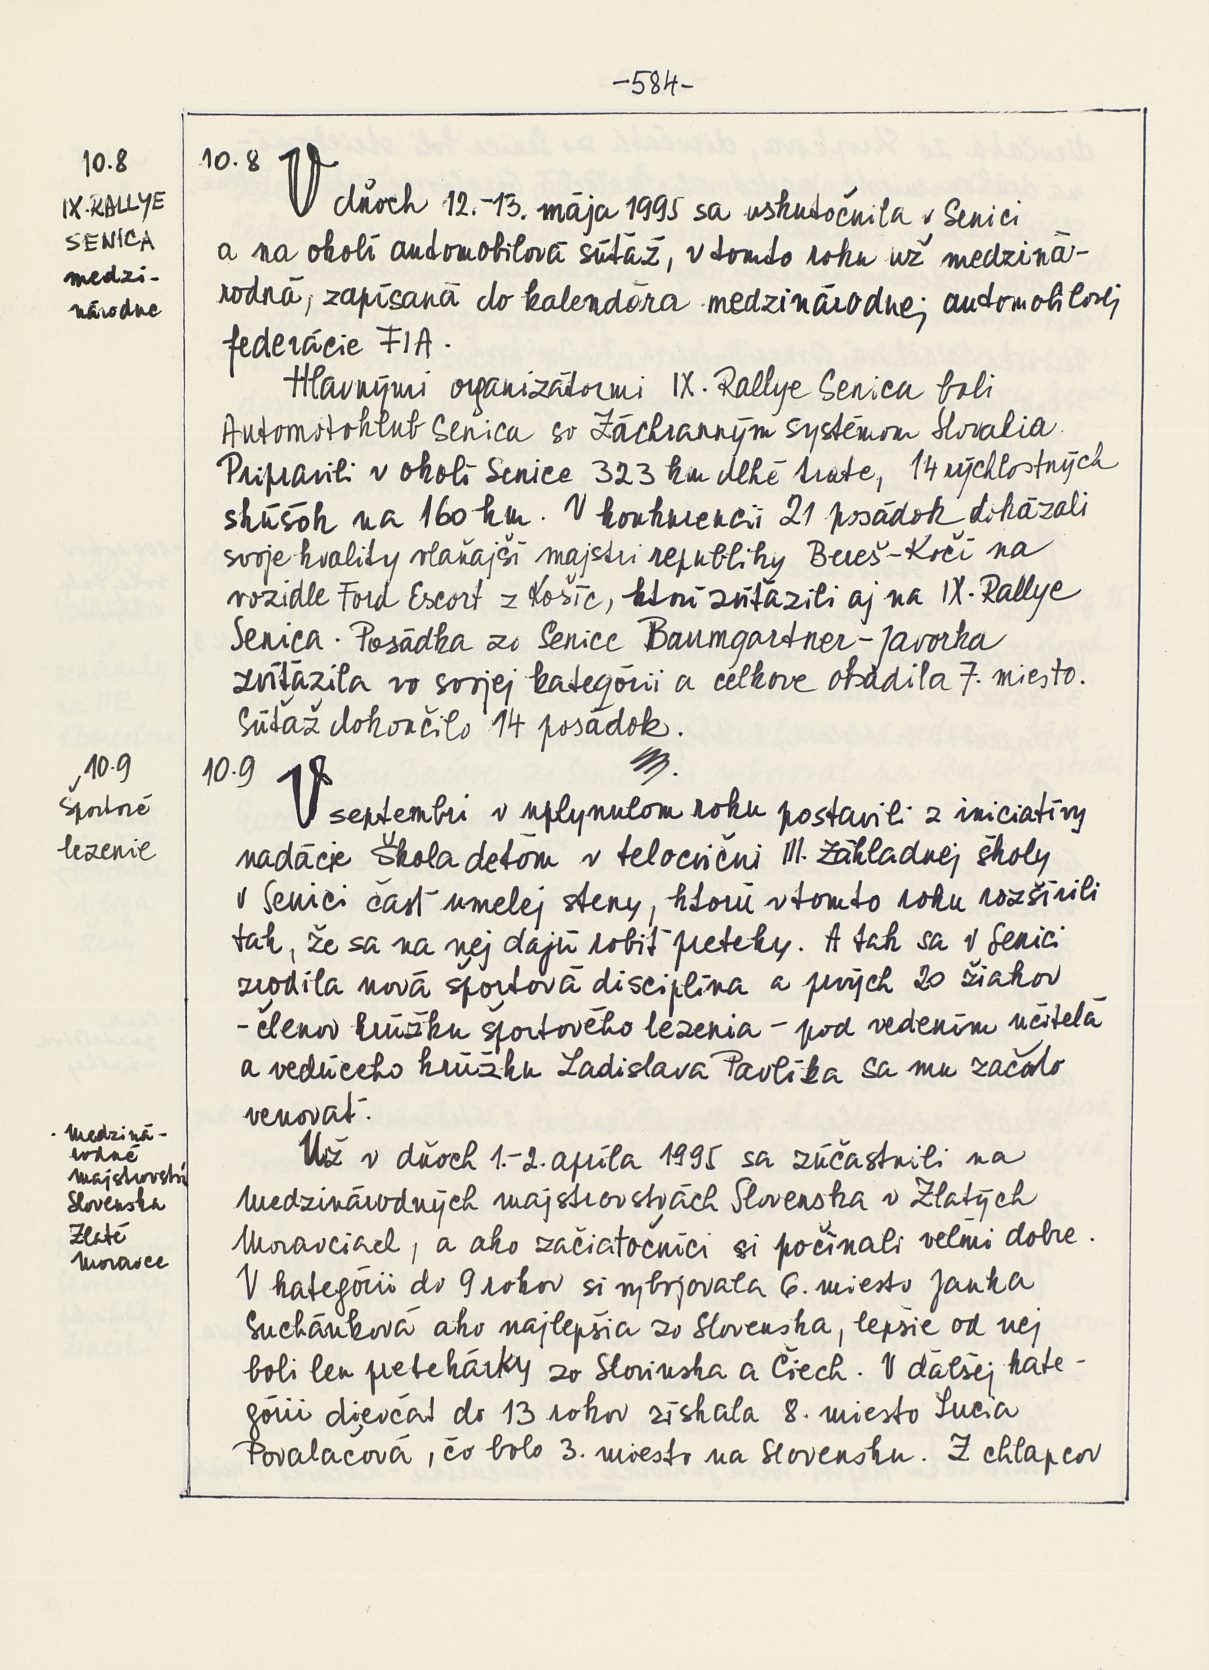 -584-
10.8
IX. RALLYE
SENICA
medzi-
národne
10.8 V dňoch 12.-13. mája 1995 sa uskutočnila v Senici
a na okolí automobilová súťaž, v tomto roku už medziná-
rodná, zapísaná do kalendára medzinárodnej automobilovej
federácie FIA.
Hlavnými organizátormi IX. Rallye Senica boli
Automotoklub Senica so Záchranným systémom Slovakia.
Pripravili v okolí Senice 323 km dlhé trate, 14 rýchlostných
skúšok na 160 km. V konkurencii 21 posádok dokázali
svoje kvality vlaňajší majstri republiky Bereš-Kočí na
vozidle Ford Escort z Košíc, ktorí zvíťazili aj na IX. Rallye
Senica. Posádka zo Senice Baumgartner-Javorka
zvíťazila vo svojej kategórii a celkove obsadila 7. miesto.
Súťaž dokončilo 14 posádok.
10.9
Športové
lezenie
10.9 V septembri v uplynulom roku postavili z iniciatívy
nadácie Škola deťom v telocvični III. základnej školy
v Senici časť umelej steny, ktorú v tomto roku rozšírili
tak, že sa na nej dajú robiť preteky. A tak sa v Senici
zrodila nová športová disciplína a prvých 20 žiakov
- členov krúžku športového lezenia - pod vedením učiteľa
a vedúceho krúžku Ladislava Pavlíka sa mu začalo
venovať.
· Mediná-
rodné
majstrovstvá
Slovenska
Zlaté
Moravce
Už v dňoch 1.-2. apríla 1995 sa zúčastnili na
Medzinárodných majstrovstvách Slovenska v Zlatých
Moravciach, a ako začiatočníci si počínali veľmi dobre.
V kategórii do 9 rokov si vybojovala 6. miesto Janka
Suchánková ako najlepšia zo Slovenska, lepšie od nej
boli len pretekárky zo Slovinska a Čiech. V ďalšej kate-
górii dievčat do 13 rokov získala 8. miesto Lucia
Povalačová, čo bolo 3. miesto na Slovensku. Z chlapcov